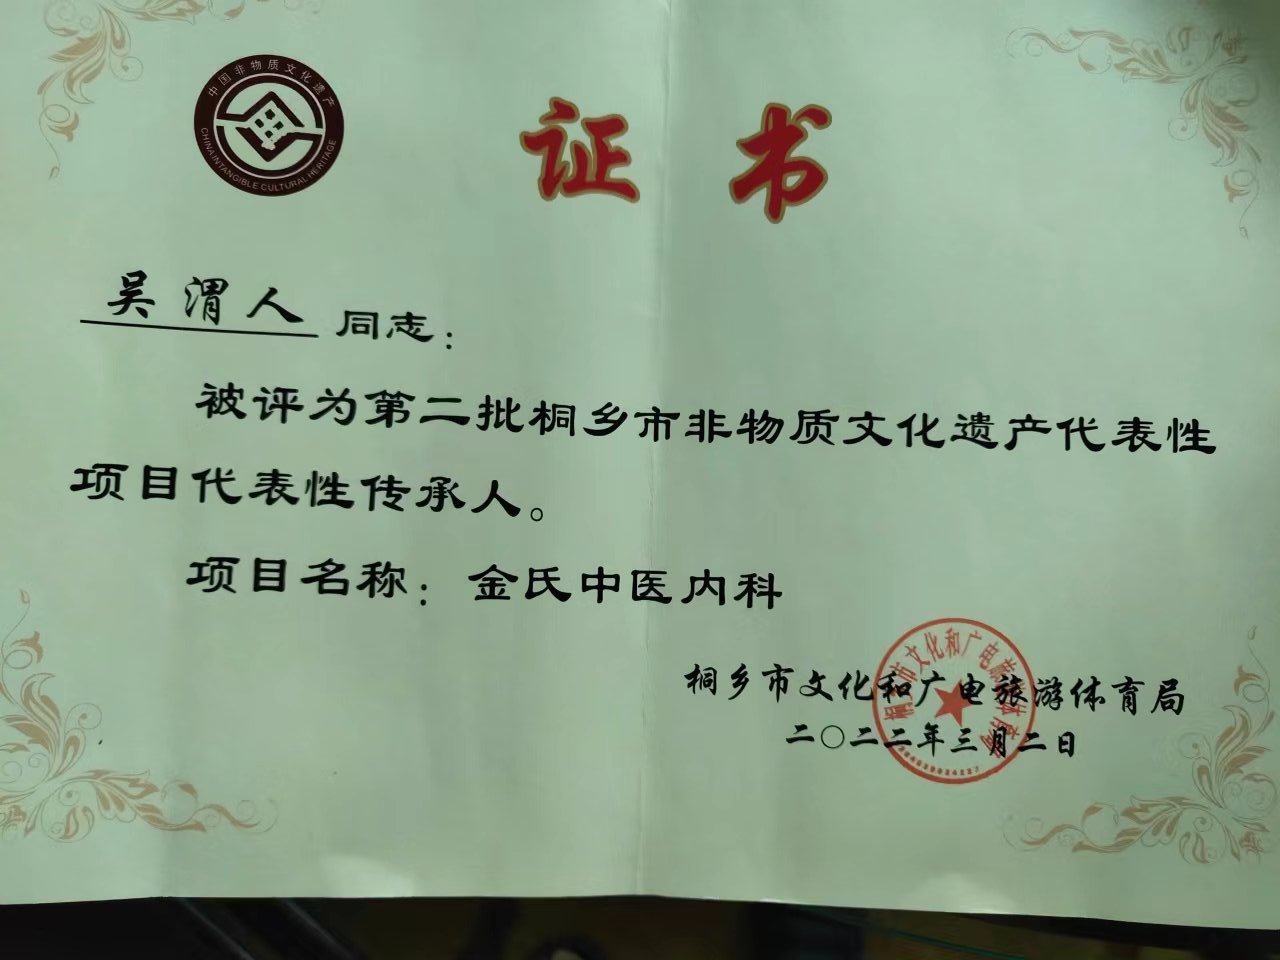 中国非物质文化遗产
CHINA INTANGIBLE CULTURAL HERITAGE
证书
吴渭人 同志：
被评为第二批桐乡市非物质文化遗产代表性
项目代表性传承人。
项目名称：金氏中医内科
桐乡市文化和广电旅游体育局
二〇二二年三月二日
桐乡市文化和广电旅游体育局